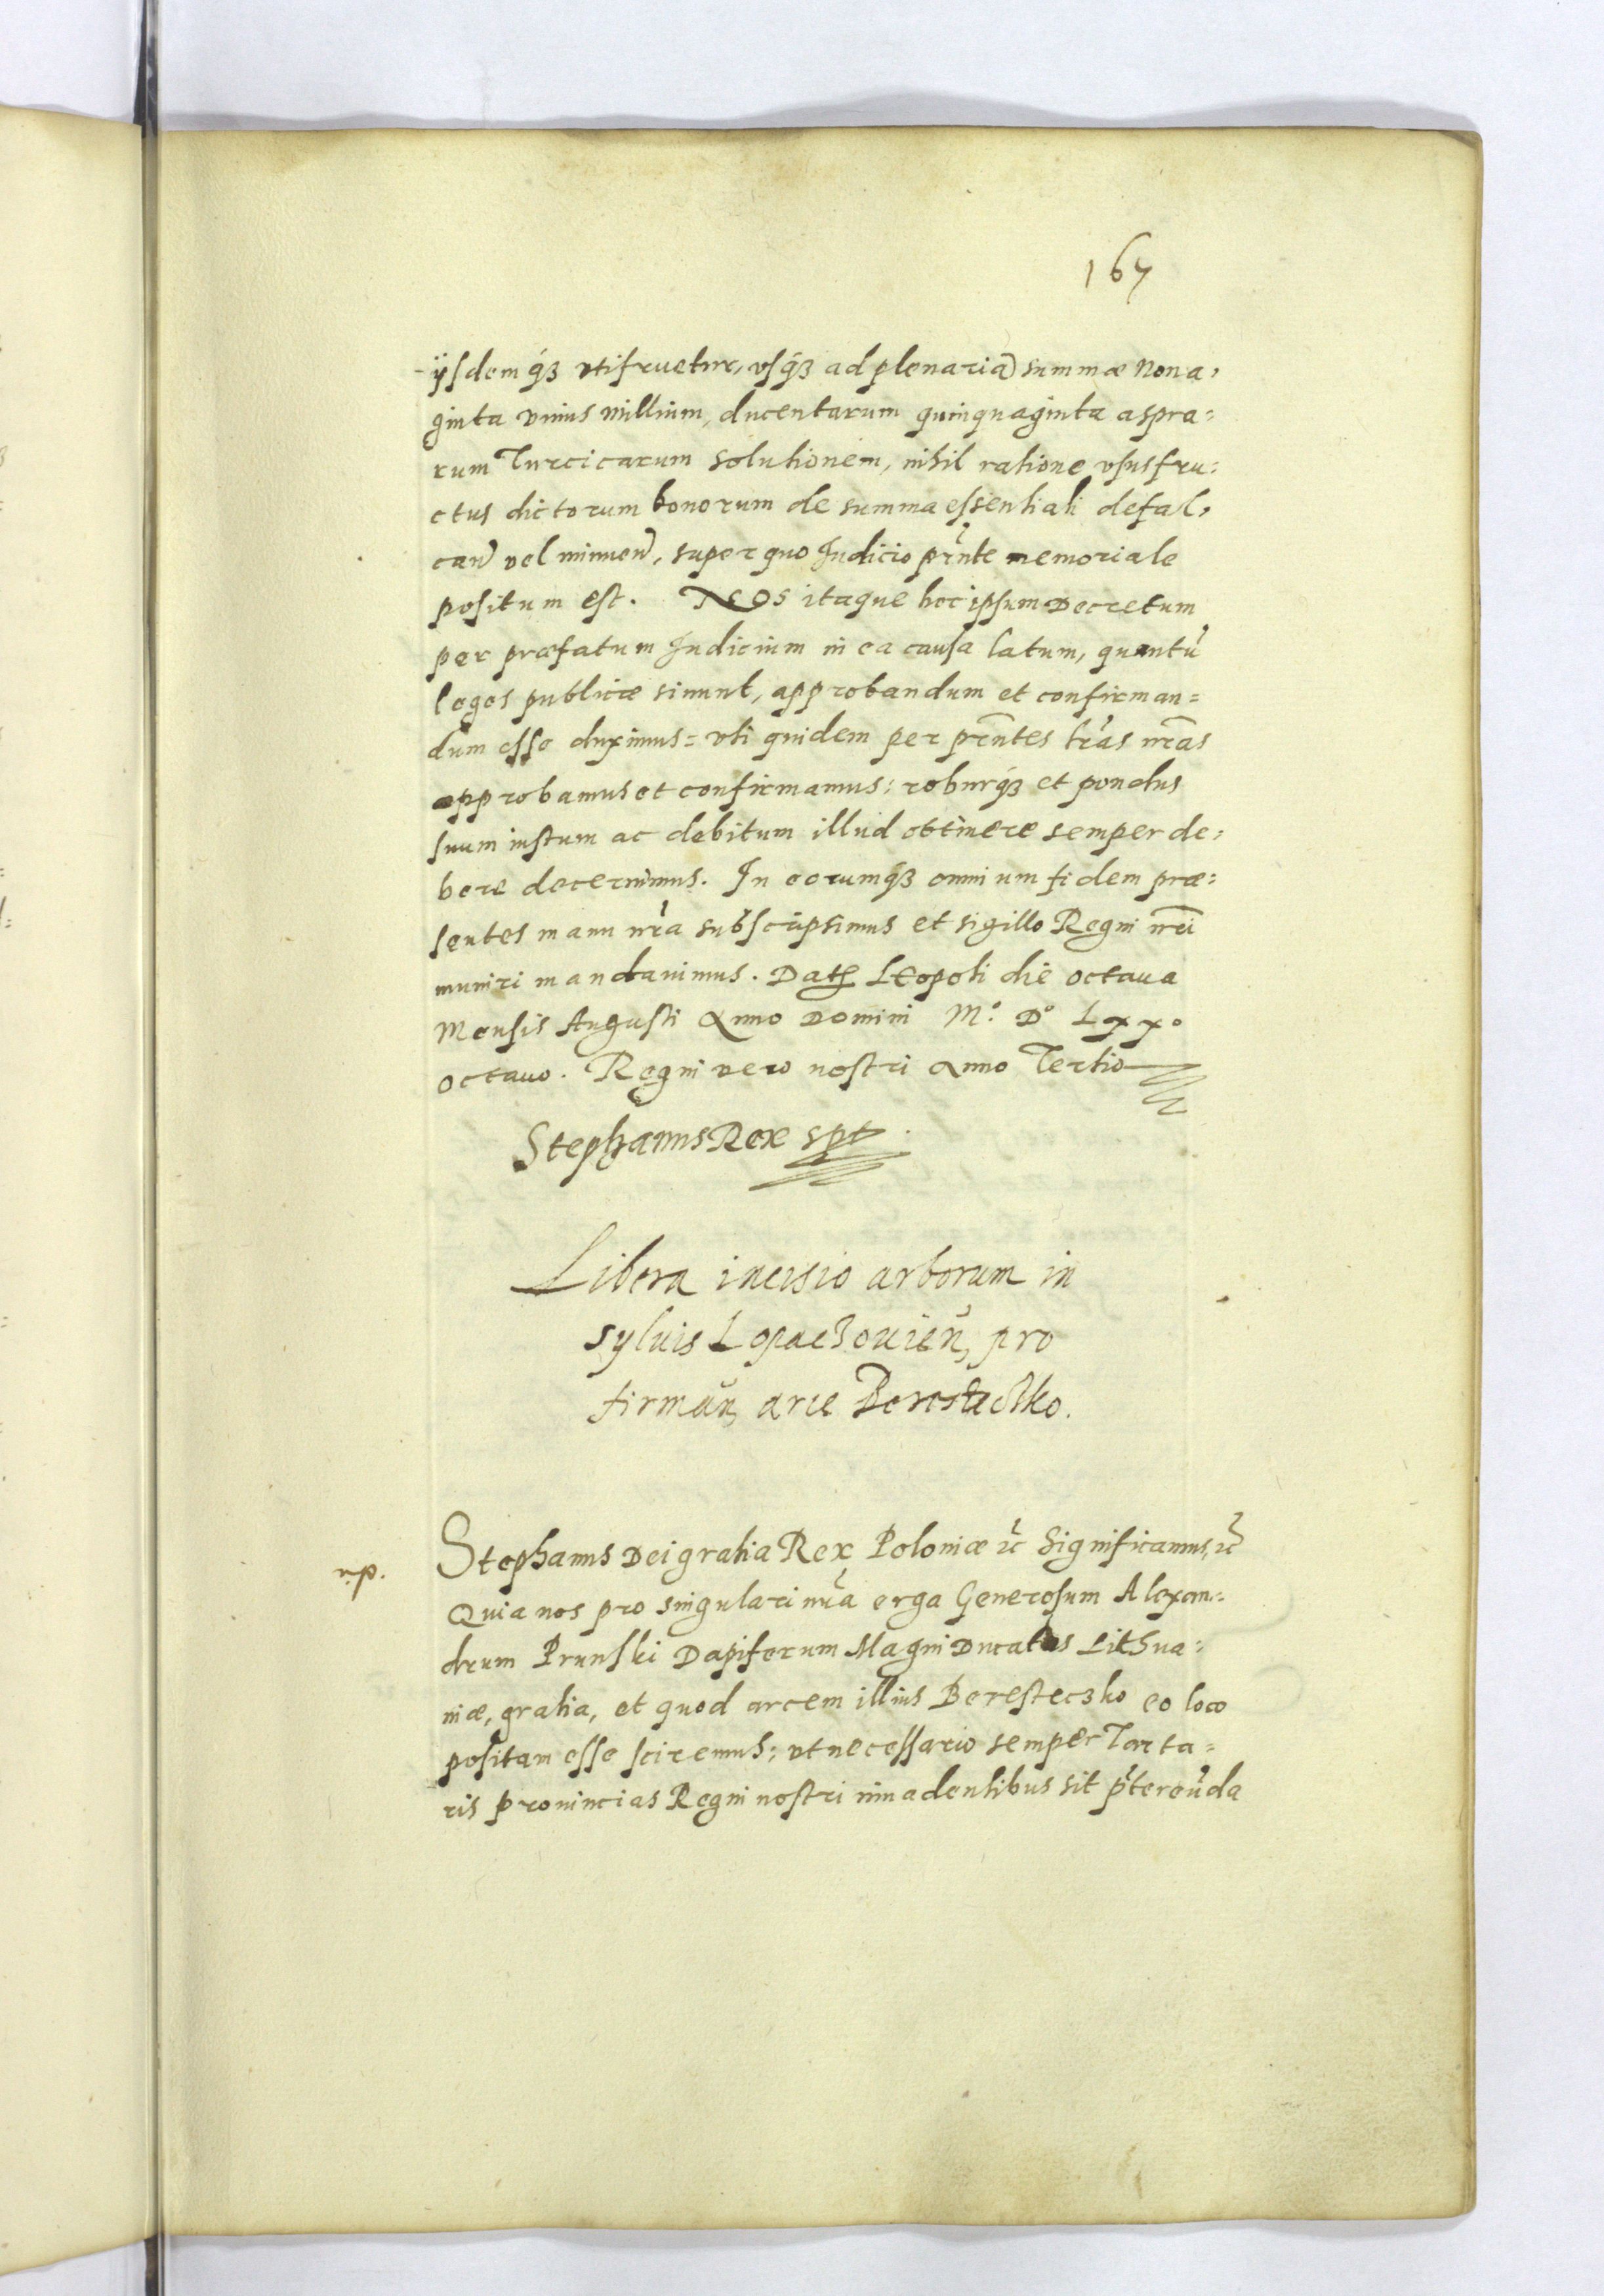 167
ijsdemq́ꝫ vtifruetur, vsq́ꝫ ad plenariã summæ Nona,
ginta vnius millium, ducentarum quinquaginta aspra=
rum Turcicarum solutionem, nihil ratione vsusfru=
ctus dictorum bonorum de summa essentiali defal,
can̄ vel minuen̄, super quo Iudicio prn̄te memoriale
positum est. NOS itaque hoc ipsum Decretum
per præfatum Iudicium in ea causa latum, quantũ
leges publicæ sinunt, approbandum et confirman=
dum esse duximus= vti quidem per prn̄tes lr̃as nr̃as
approbamus et confirmamus: roburq́ꝫ et pondus
suum iustum ac debitum illud obtinere semper de=
bere decernimus. In eorumq́ꝫ omnium fidem præ=
sentes manu nr̃a subscripsimus et sigillo Regni nr̃i
muniri mandauimus. Datꝭ Leopoli die octaua
Mensis Augusti Anno Domini M.º Dº Lxxº
octauo. Regni vero nostri Anno Tertio
Stephanus Rex spt
Libera incisio arborum in
syluis Lopaczouien̄, pro
firman̄ arce Beresteczko.
r.p.
Stephanus Dei gratia Rex Poloniæ ẽc Significamus, ẽc
Quia nos pro singulari nr̃a erga Generosum Alexan=
drum Prunski Dapiferum Magni Ducatus Lithua=
niæ, gratia, et quod arcem illius Beresteczko eo loco
positam esse sciremus; vt necessario semper Tarta=
ris prouincias Regni nostri inuadentibus sit p̃tereũda